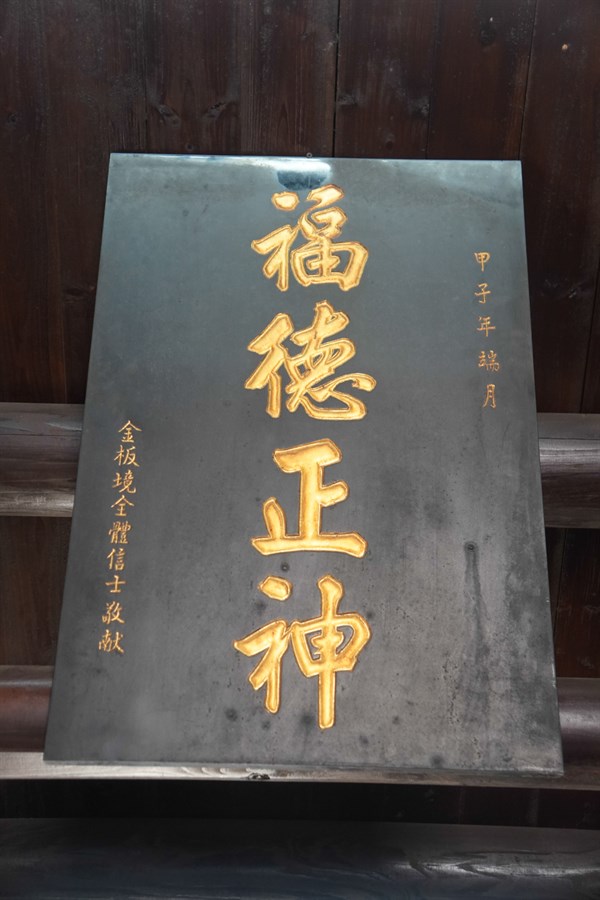 甲子年端月
福德正神
金板境全體信士敬献